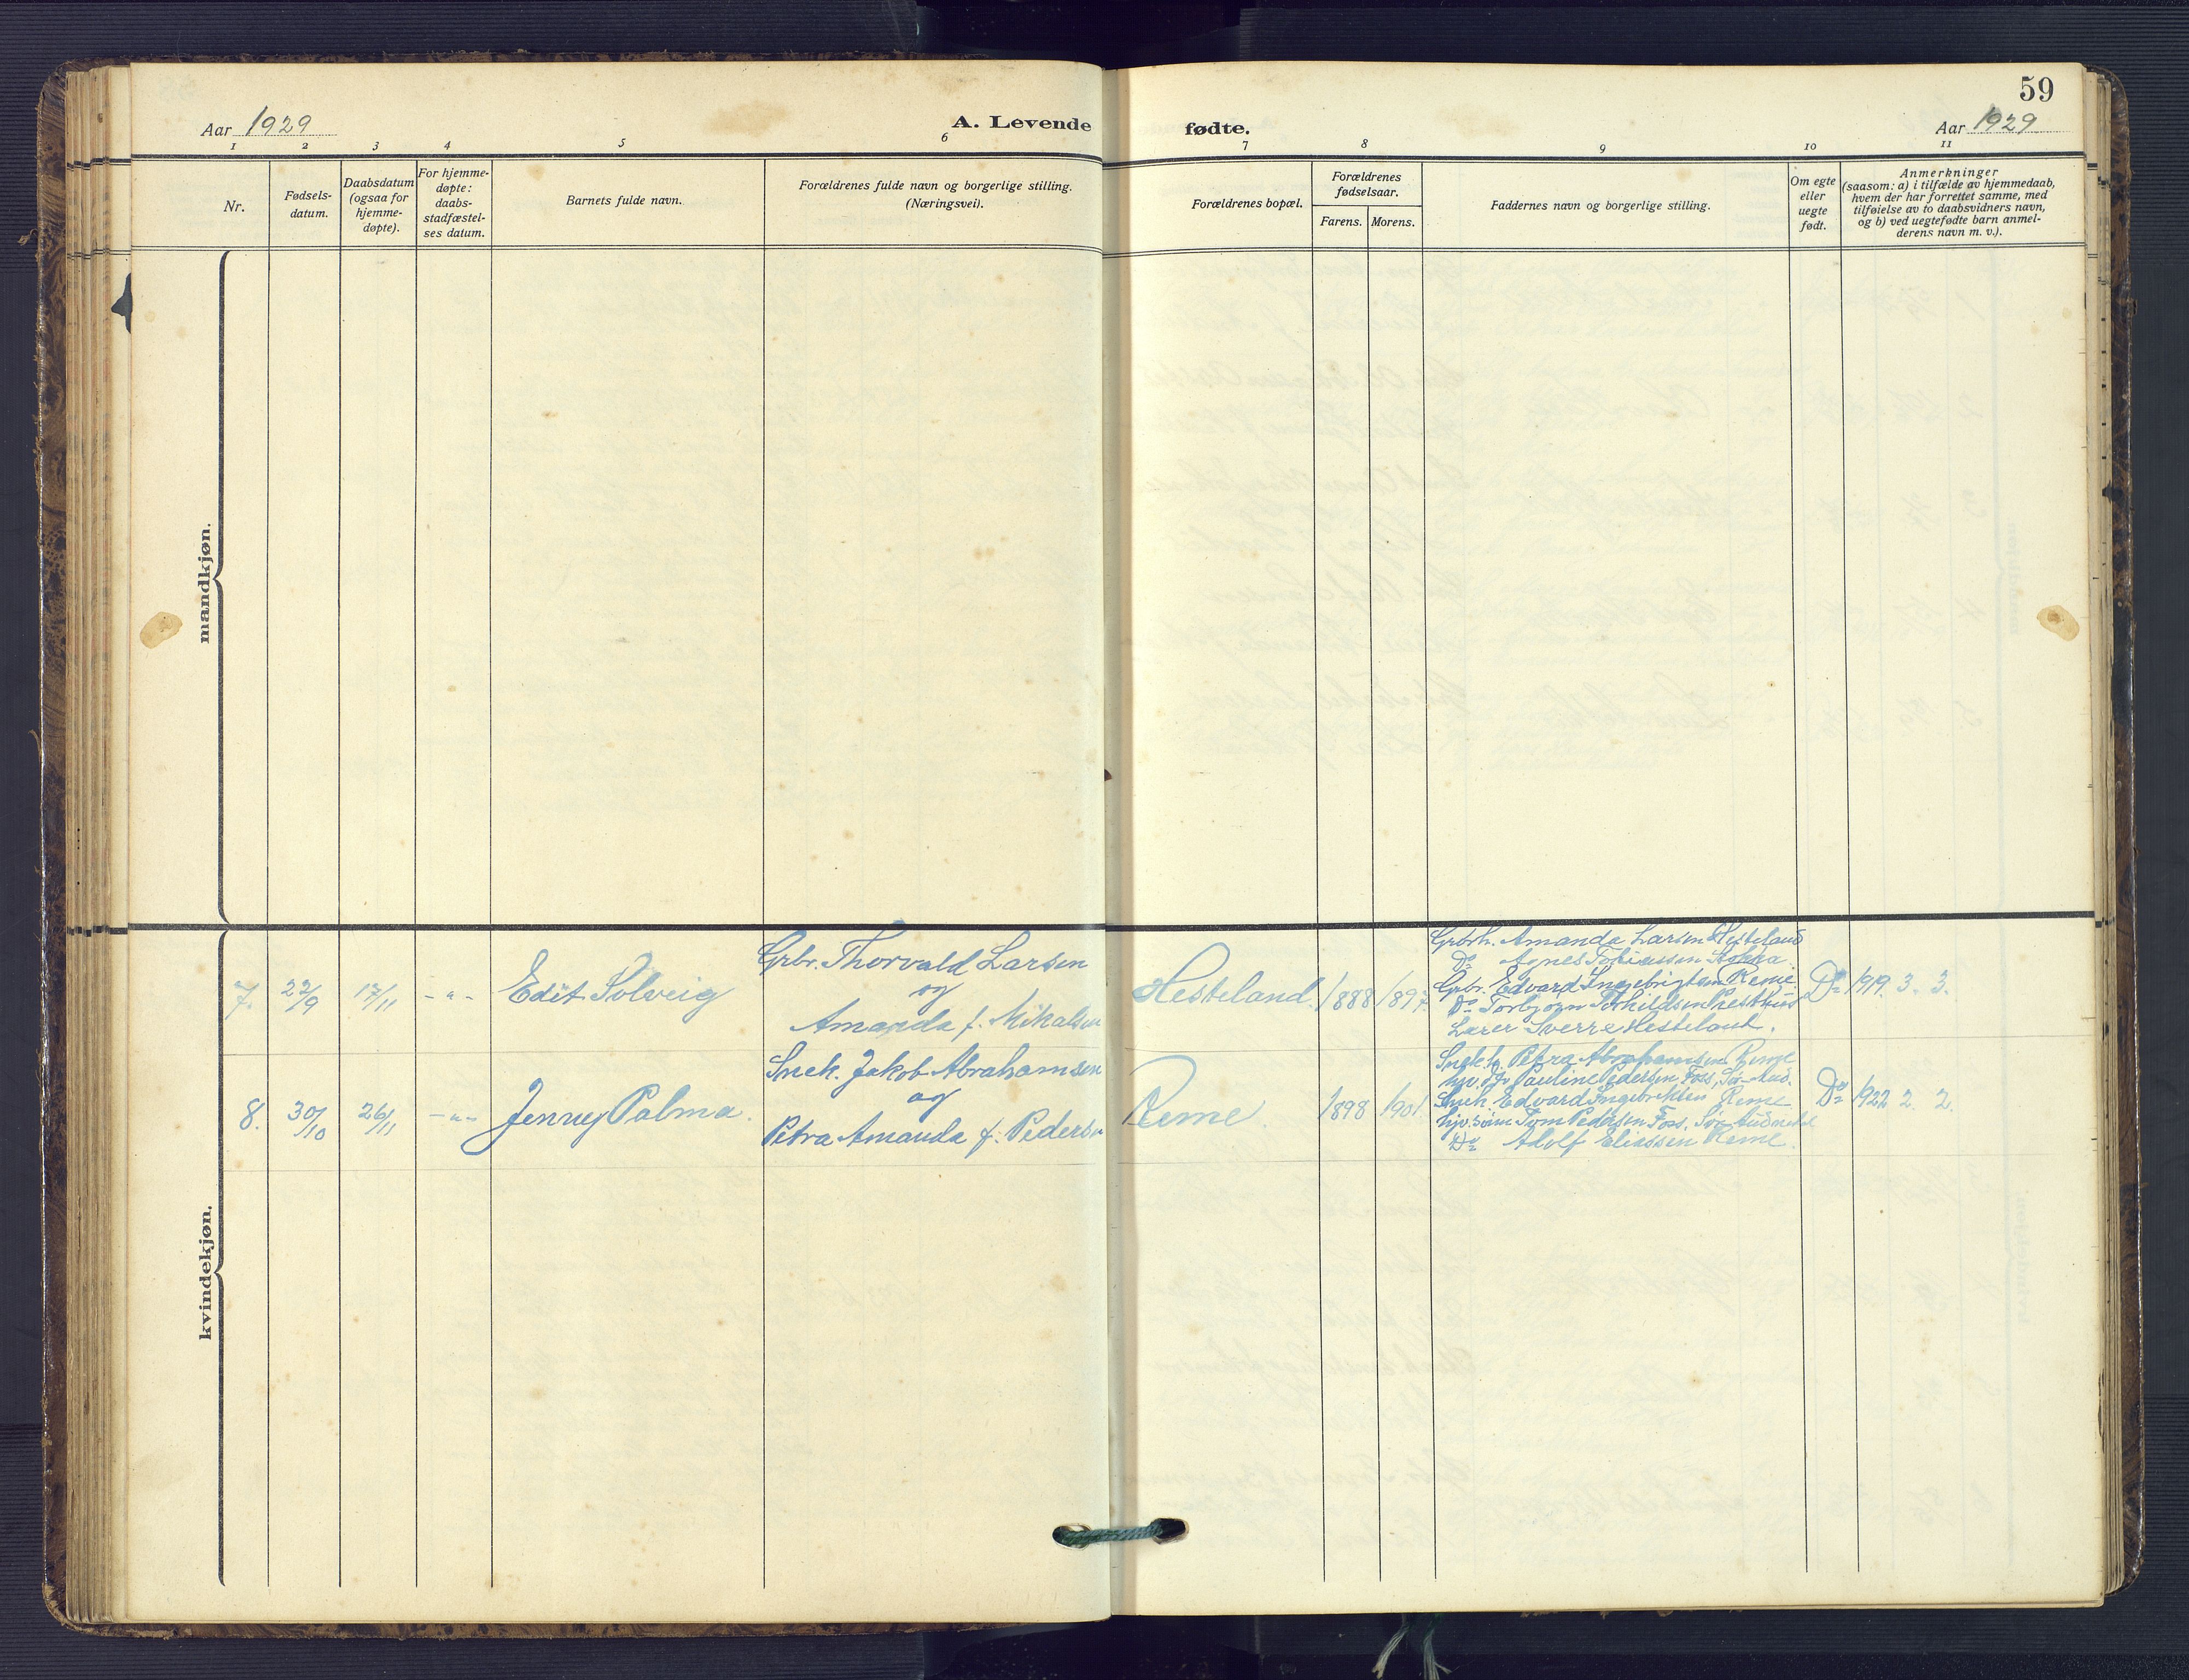 59
Aar 1929
A. Levende fødte.
Aar 1929
1 2 3 4 5 6 7 8 9 10 11
Nr.
Fødsels-
datum.
Daabsdatum
(ogsaa for
hjemme-
døpte).
For hjemme-
døpte:
daabs-
stadfæstel-
ses datum.
Barnets fulde navn.
Forældrenes fulde navn og borgerlige stilling.
(Næringsvei).
Forældrenes bopæl.
Forældrenes
fødselsaar.
Farens. Morens.
Faddernes navn og borgerlige stilling.
Om egte
eller
uegte
født.
Anmerkninger
(saasom: a) i tilfælde av hjemmedaab,
hvem der har forrettet samme, med
tilføielse av to daabsvidners navn,
og b) ved uegtefødte barn anmel-
derens navn m. v.).
mandkjøn.
kvindekjøn.
7. 22/9 17/11 - " - Edit Solveig
Grbr. Thorvald Larsen
og
Amanda f. Mikalsen
Hesteland. 1888 1897.
Grbrh. Amanda Larsen Hesteland
Do Agnes Tobiassen
Grbr. Edvard Ingebrigtsen Reme.
Do Torbjørn
Lærer Sverre Hesteland.
Do 1919. 3. 3.
8. 30/10 26/11 - " - Jenny Palma.
Snek. Jakob Abrahamsen
og
Petra Amanda f. Pedersen
Reme. 1898 1901.
Snekh. Petra Abrahamsen Reme
Pauline Pedersen Foss,
Snek. Edvard Ingebriktsen Reme
hjv. søn Tom Pedersen Foss, Sør Audnedal
Do Adolf Eliassen Reme.
Do 1922 2. 2.